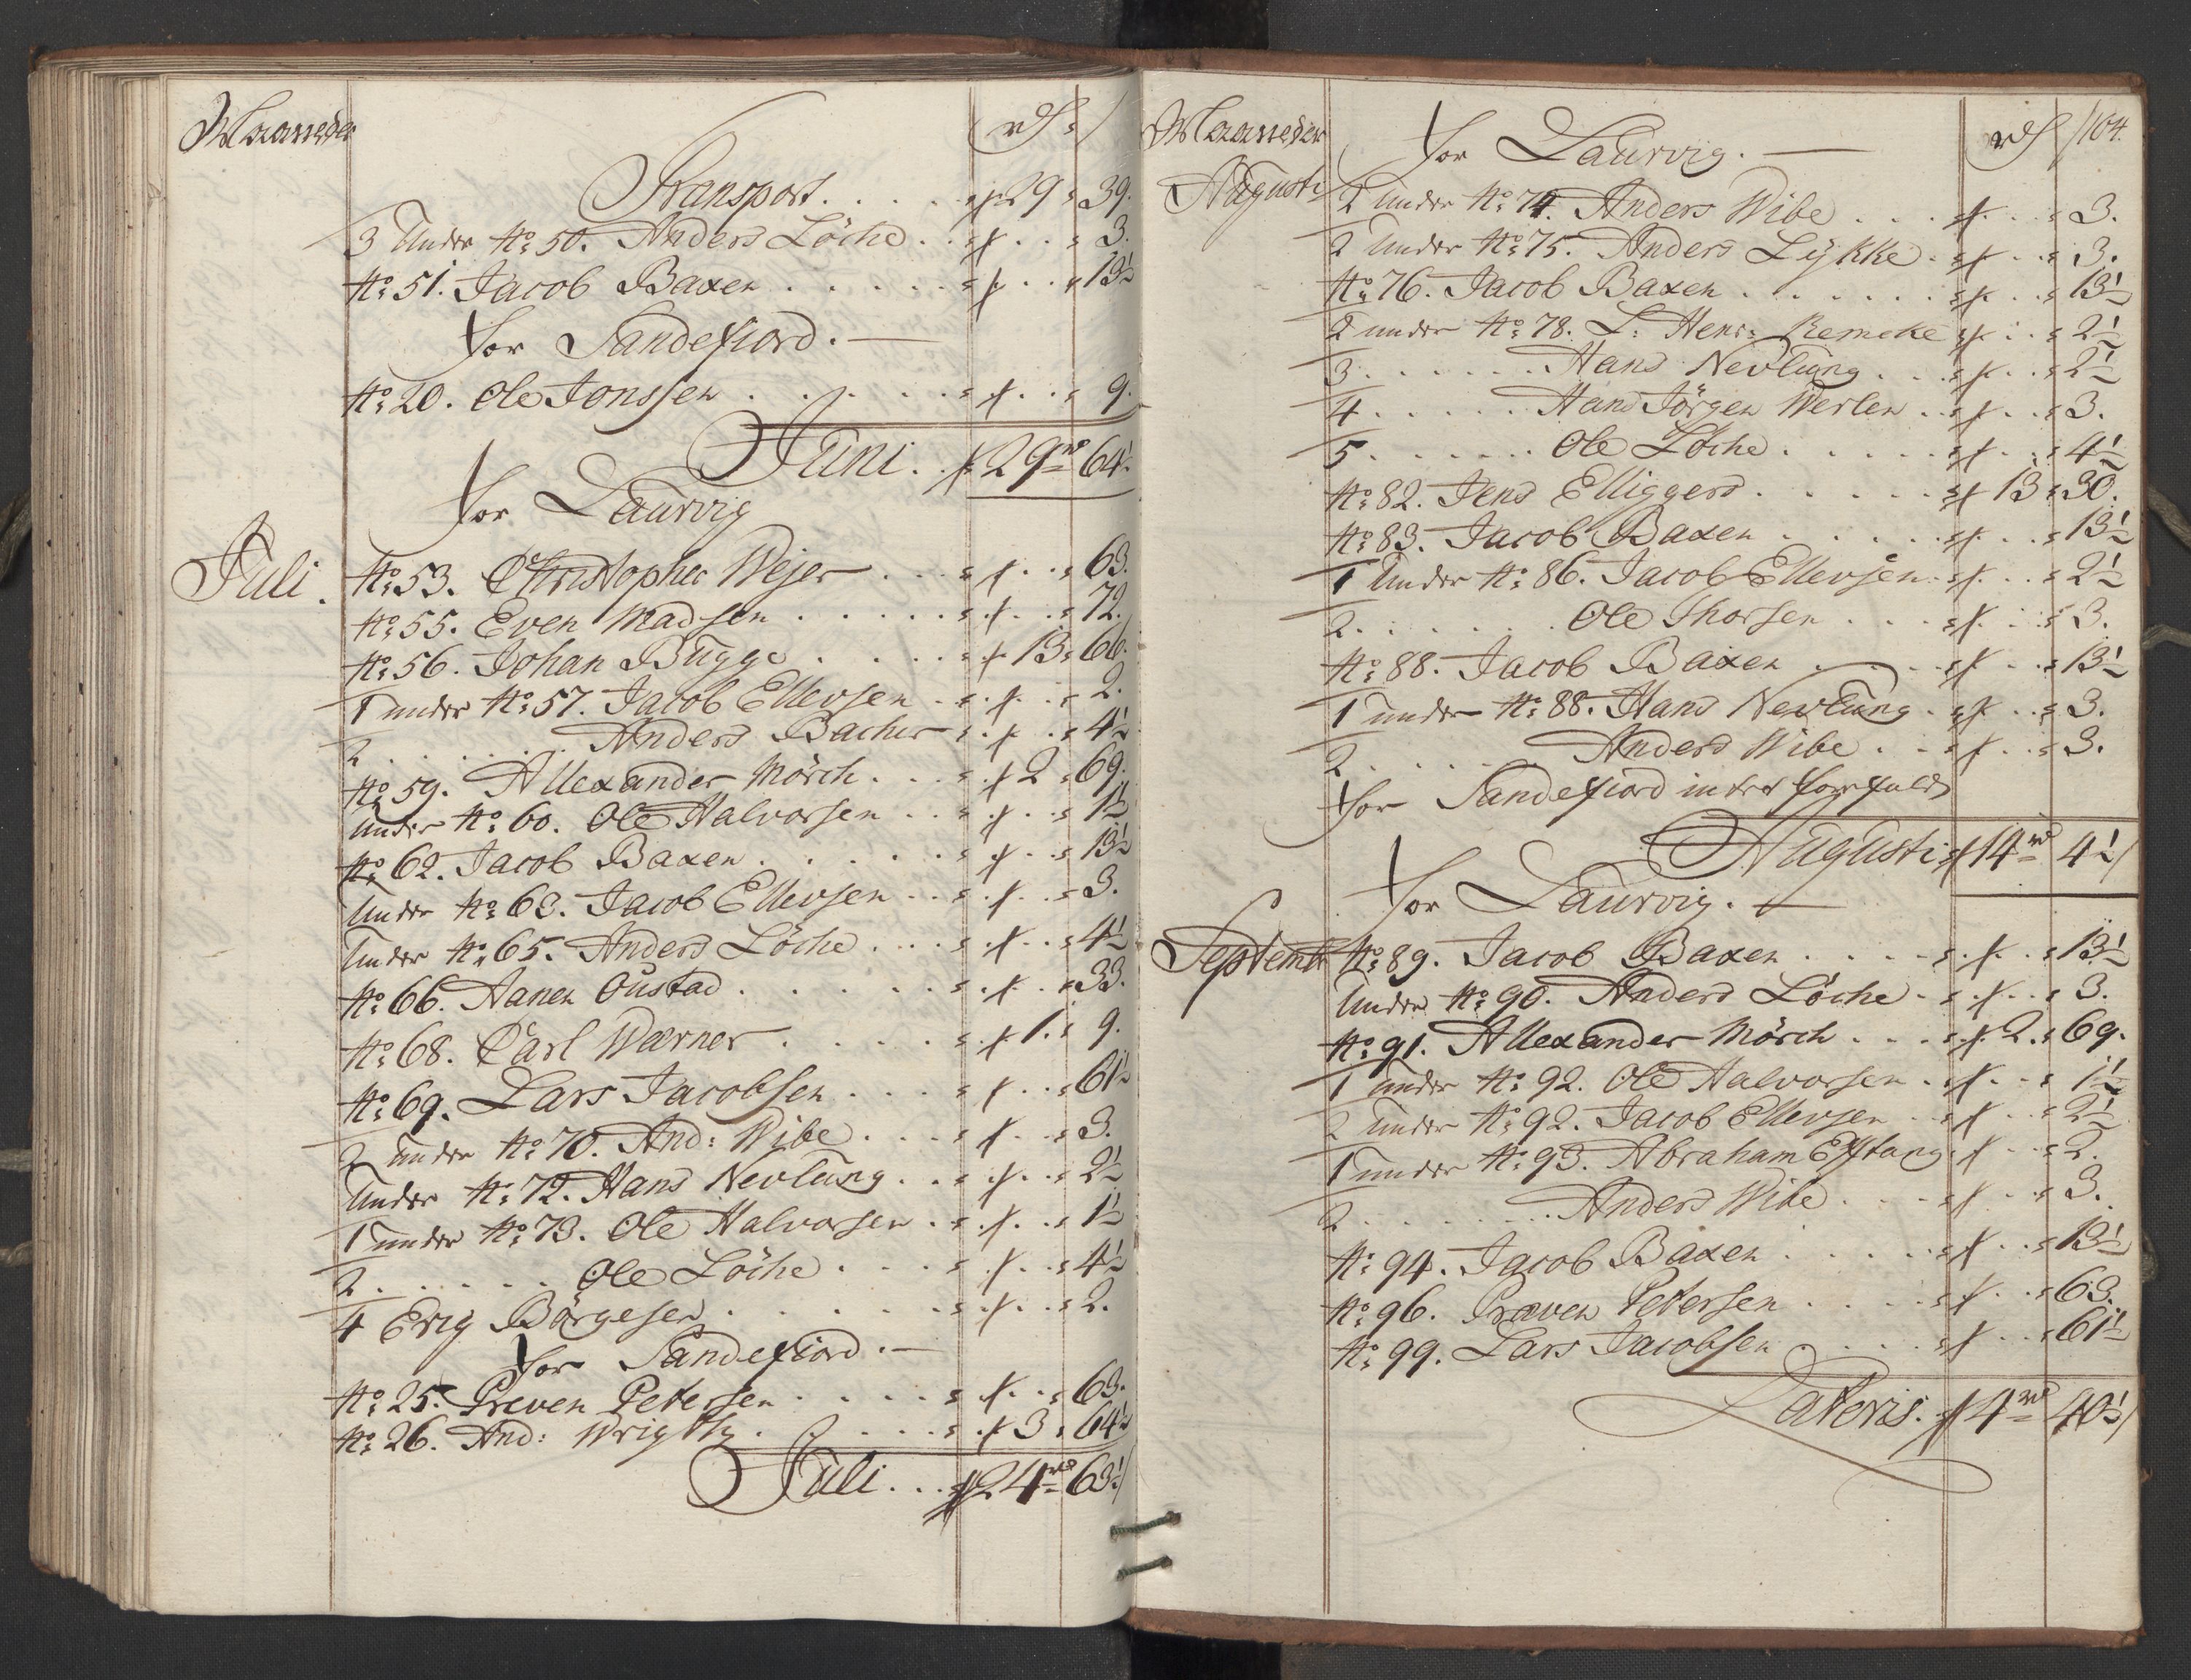 Maaneder rd
Transport. . . . . 29 = 39.
3 Under No: 50. Anders Löche . . 3.
No: 51. Jacob Baxen . . . . . 13½
for Sandefiord. —
No: 20. Ole Jonssen . . . . . 9.
Juni . . 29 rd 64½
for Laurvig
Juli. No: 53. Christopher Wejer . . . 63.
No: 55. Even Madsen . . . . . 72.
No: 56. Johan Bugge . . . . 13 = 66.
1 under No: 57. Jacob Ellevsen . . . 2.
2 . . . . . . Anders Bacher . . . 4½
No: 59. Allexander Mörch . . . 2 = 69.
Under No: 60. Ole Halvorsen . . . 1½
No: 62. Jacob Baxen . . . . . 13½
Under No: 63. Jacob Ellevsen . . . 3.
Under No: 65. Anders Löche . . . 4½
No: 66. Aanen Oustad . . . . . 33.
No: 68. Carl Wærner . . . . 1. = 9.
No: 69. Lars Jacobsen . . . . 61½
2 under No: 70. And: Wibe . . . 3.
Under No: 72. Hans Nevlung . . . 2½
1 under No: 73. Ole Halvorsen . . . 1½
2 . . . . . . Ole Löche . . . . 4½
4 Erig Börgesen . . . . . 2.
for Sandefiord. —
No: 25. Preven Petersen . . . . 63.
No: 26. And: Wrigth . . . . 3 = 64½
Juli . . . 24 rd 63½
Maaneder rd 104.
for Laurvig. —
Augusti 2 under No: 74. Anders Wibe . . . 3.
2 Under No: 75. Anders Lykke . . . 3.
No: 76. Jacob Baxen . . . . . . 13½
2 under No: 78. L: Henr: Remcke . . . 2½
3 . . . . . . Hans Nevlung . . . 2½
4 . . . . . Hans Jörgen Werlen . . . 3.
5 . . . . . . Ole Löche . . . . . 4½
No: 82. Jens Elliggers . . . . . 13 = 30.
No: 83. Jacob Baxen . . . . . 13½
1 Under No: 86. Jacob Ellevsen . . . 2½
2 . . . . . . Ole Thorsen . . . 3.
No: 88. Jacob Baxen . . . . 13½
1 under No: 88. Hans Nevlung . . . 3.
2 . . . . . Anders Wibe . . . 3.
for Sandefiord intet forefald
Augusti 14 rd 4½
for Laurvig. —
Septembr No: 89. Jacob Baxen . . . . 13½
Under No: 90. Anders Löche . . . 3.
No: 91. Allexander Mörch . . . 2. = 69.
1 under No: 92. Ole Halvorsen . . . 1½
2 under No: 92. Jacob Ellevsen . . . 2½
1 under No: 93. Abraham Eftang . . . 2.
2 . . . . . . . Anders Wibe . . . 3.
No: 94. Jacob Baxen . . . . . 13½
No: 96. Præven Petersen . . . . 63.
No: 99. Lars Jacobsen . . . . 61½
Lateris. 4 rd 40½